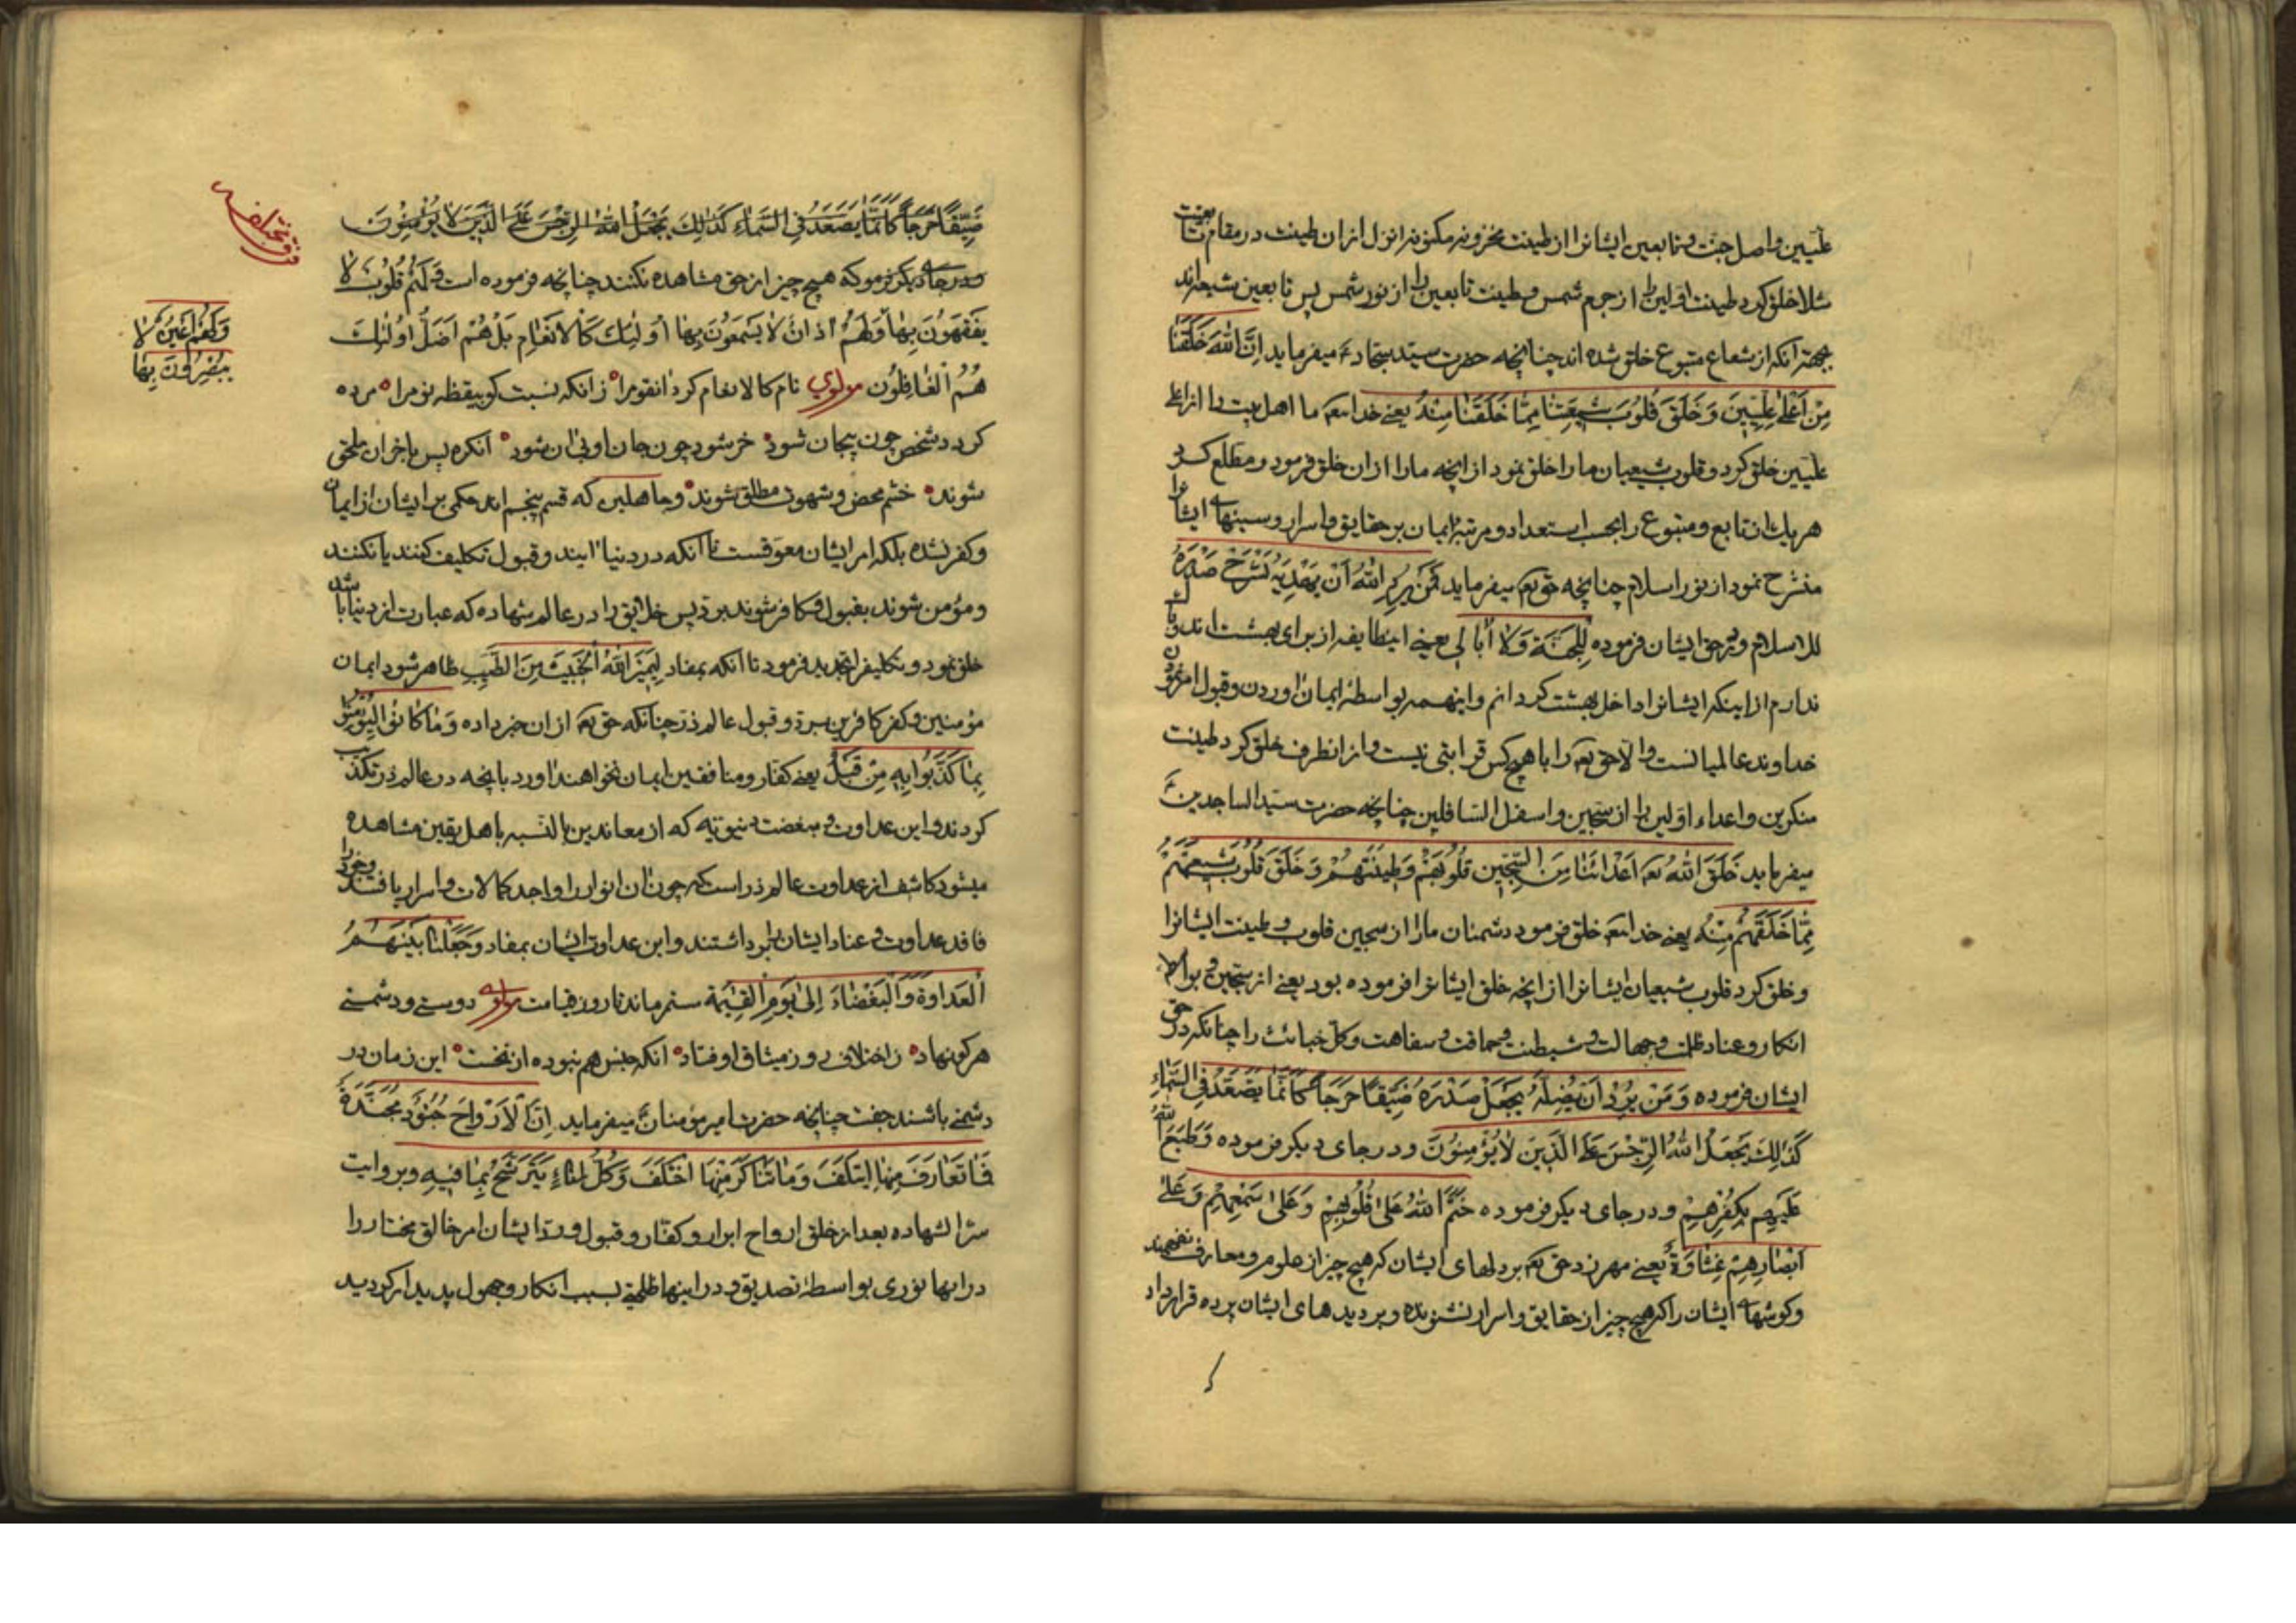 علیین و اصل جنت و تابعین ایشانرا از طینت مخزونه مکنونه انزل از ان طینت در مقام تابعیت
مثلا خلق کرد طینت اولین را از جرم شمس و طینت تابعین را از نور شمس پس تابعین شیعه‌اند
بجهة انکه از شعاع متبوع خلق شده اند چنانچه حضرت سید سجاد ع میفرماید اِنَّ اللهَ خَلَقَنا
مِنْ اَعْلیٰ عِلِّیِّینَ وَ خَلَقَ قُلُوبَ شیعَتِنا مِمّا خَلَقَنا مِنْهُ یعنی خدایتعه ما اهل بیت را از اعلی
علیین خلق کرد و قلوب شیعیان ما را خلق نمود از انچه ما را از ان خلق فرمود و مطلع کرد
هر یک از تابع و متبوع را بحسب استعداد و مرتبۀ ایمان بر حقایق و اسرار و سینهای ایشانرا
منشرح نمود از نور اسلام چنانچه حق تعه میفرماید فَمَنْ یُرِدِ اللهُ اَنْ یَهْدِیَهُ یَشْرَحْ صَدْرَهُ
للاسلام و در حق ایشان فرموده لِلْجَنَّةِ وَلا اُبالی یعنی اینطایفه از برای بهشت اند و باک
ندارم از اینکه ایشانرا داخل بهشت کردانم و اینهمه بواسطۀ ایمان اوردن و قبول امر نمودن
خداوند عالمیانست و الا حق تعه را با هیچ کس قرابتی نیست و از انطرف خلق کرد طینت
منکرین و اعداء اولین را از سجین و اسفل السافلین چنانچه حضرت سید الساجدین ع
میفرماید خَلَقَ اللهُ تعه اَعْدائَنا مِنَ السِّجّین قُلُوبَهُمْ وَ طینَتَهُمْ وَ خَلَقَ قُلُوبَ شیعَتِهِمْ
مِمّا خَلَقَهُمْ مِنْهُ یعنی خدایتعه خلق فرمود دشمنان ما را از سجین قلوب و طینت ایشانرا
و خلق کرد قلوب شیعیان ایشانرا از انچه خلق ایشانرا فرموده بود یعنی از سجین و بواسطه
انکار و عناد ظلمت و جهالت و شیطنت و حماقت و سفاهت و کل خباثت را چنانکه در حق
ایشان فرموده وَ مَنْ یُرِدْ اَنْ یُضِلَّهُ یَجْعَلْ صَدْرَهُ ضَیِّقاً حَرَجاً کَاَنَّما یَصَّعَّدُ فِی السَّماءِ
کَذٰلِکَ یَجْعَلُ اللهُ الرِّجْسَ عَلَی الَّذینَ لا یُؤْمِنُونَ و در جای دیکر فرموده وَ طَبَعَ اللهُ
عَلَیْهِم بِکُفْرِهِمْ و در جای دیکر فرموده خَتَمَ اللهُ عَلیٰ قُلُوبِهِمْ وَ عَلیٰ سَمْعِهِمْ وَ عَلیٰ
اَبْصارِهِمْ غِشاوَةٌ یعنی مهر زد حق تعه بر دلهای ایشان که هیچ چیز از علوم و معارف نفهمند
و کوشهای ایشان را که هیچ چیز از حقایق و اسرار نشنوند و بر دیدهای ایشان پرده قرار داد
ضَیِّقاً حَرَجاً کَاَنَّما یَصَّعَّدُ فِی السَّماءِ کَذٰلِکَ یَجْعَلُ اللهُ الرِّجْسَ عَلَی الَّذینَ لا یُؤْمِنُونَ
و در جای دیکر فرمود که هیچ چیز از حق مشاهده نکنند چنانچه فرموده است وَ لَهُمْ قُلُوبٌ لا
یَفْقَهُونَ بِها وَ لَهُمْ اٰذانٌ لا یَسْمَعُونَ بِها اُولٰئِکَ کَالْاَنْعامِ بَلْ هُمْ اَضَلُّ اُولٰئِکَ
وَ لَهُمْ اَعْیُنٌ لا
یُبْصِرُونَ بِها
هُمُ الْغافِلُون مولوی نام کالانعام کرد انقوم را زانکه نسبت کو بیقظه نوم را مرده
کردد شخص چون بیجان شود خر شود چون جان او بی ان شود انکره پس با خران ملحق
شوند خشم محض و شهوت مطلق شوند و جاهلین که قسم پنجم اند حکمی بر ایشان از ایمان
و کفر نشده بلکه امر ایشان معوقست تا انکه در دنیا ایند و قبول تکلیف کنند یا نکنند
و مؤمن شوند بقبول و کافر شوند برد پس خلایق را در عالم شهاده که عبارت از دنیا باشد
خلق نمود و تکلیف را تجدید فرمود تا انکه بمفاد لِیَمیزَ اللهُ الْخَبیثَ مِنَ الطَّیِّبِ ظاهر شود ایمان
مؤمنین و کفر کافرین برد و قبول عالم ذر چنانکه حق تعه از ان خبر داده وَ ما کانُوا لِیُؤْمِنُوا
بِما کَذَّبُوا بِهِ مِنْ قَبْلُ یعنی کفار و منافقین ایمان نخواهند اورد بانچه در عالم ذر تکذیب
کردند و این عداوت و مبغضت دنیویه که از معاندین بالنسبه باهل یقین مشاهده
میشود کاشف از عداوت عالم ذر است که چون ان انوار را واجد کمالات و اسرار یافتند و خود را
فاقد عداوت و عناد ایشان را برداشتند و این عداوت ایشان بمفاد وَ جَعَلْنا بَیْنَهُمُ
الْعَداوَةَ وَ الْبَغْضاءَ اِلیٰ یَوْمِ الْقِیٰمَة مستمر ماند تا روز قیامت مولوی دوستی و دشمنی
هر کو نهاد ز اختلافی روز میثاق اوفتاد انکه جنس هم نبوده از نخست این زمان در
دشمنی باشند جفت چنانچه حضرت امیر مؤمنان ع میفرماید اِنَّ الْاَرْواحَ جُنُودٌ مُجَنَّدَةٌ
فَما تَعارَفَ مِنْها ایتَلَفَ وَ ما تَناکَرَ مِنْها اخْتَلَفَ وَ کُلُّ اِناءٍ یَتَرَشَّحُ بِما فیهِ و بروایت
سر الشهاده بعد از خلق ارواح ابرار و کفار و قبول و رد ایشان امر خالق مختار را
در انها نوری بواسطۀ تصدیق و در اینها ظلمة بسبب انکار و جهول پدیدار کردید